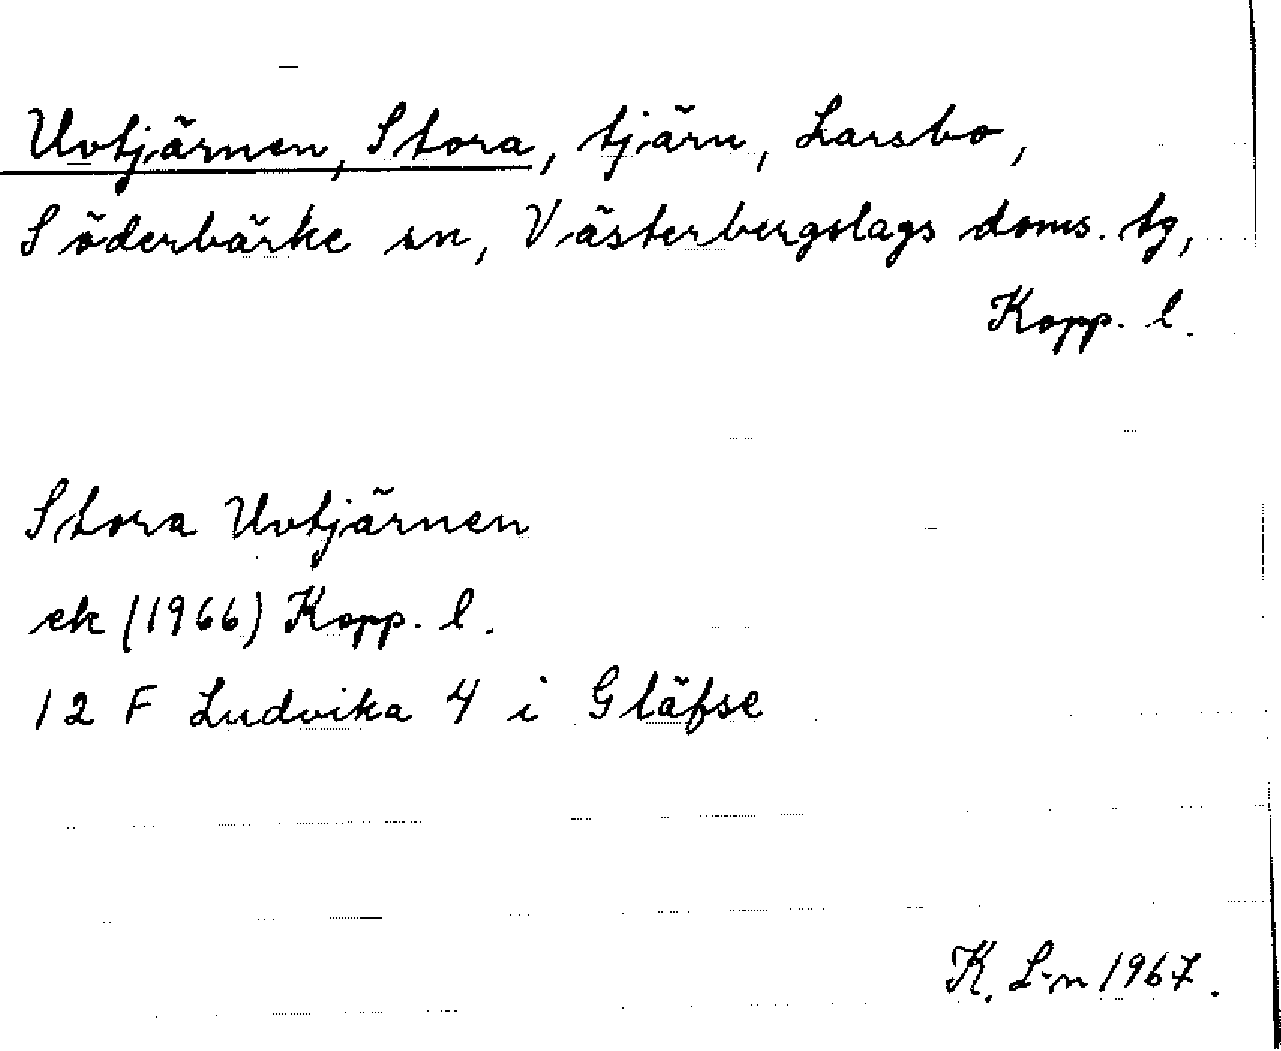 Uvtjärnen, Stora, tjärn, Larsbo,
Söderbärke sn, Västerbergslags doms. tg,
Kopp. l.
Stora Uvtjärnen
ek (1966) Kopp. l.
12 F Ludvika 4 i Gläfse
K. L-n 1967.